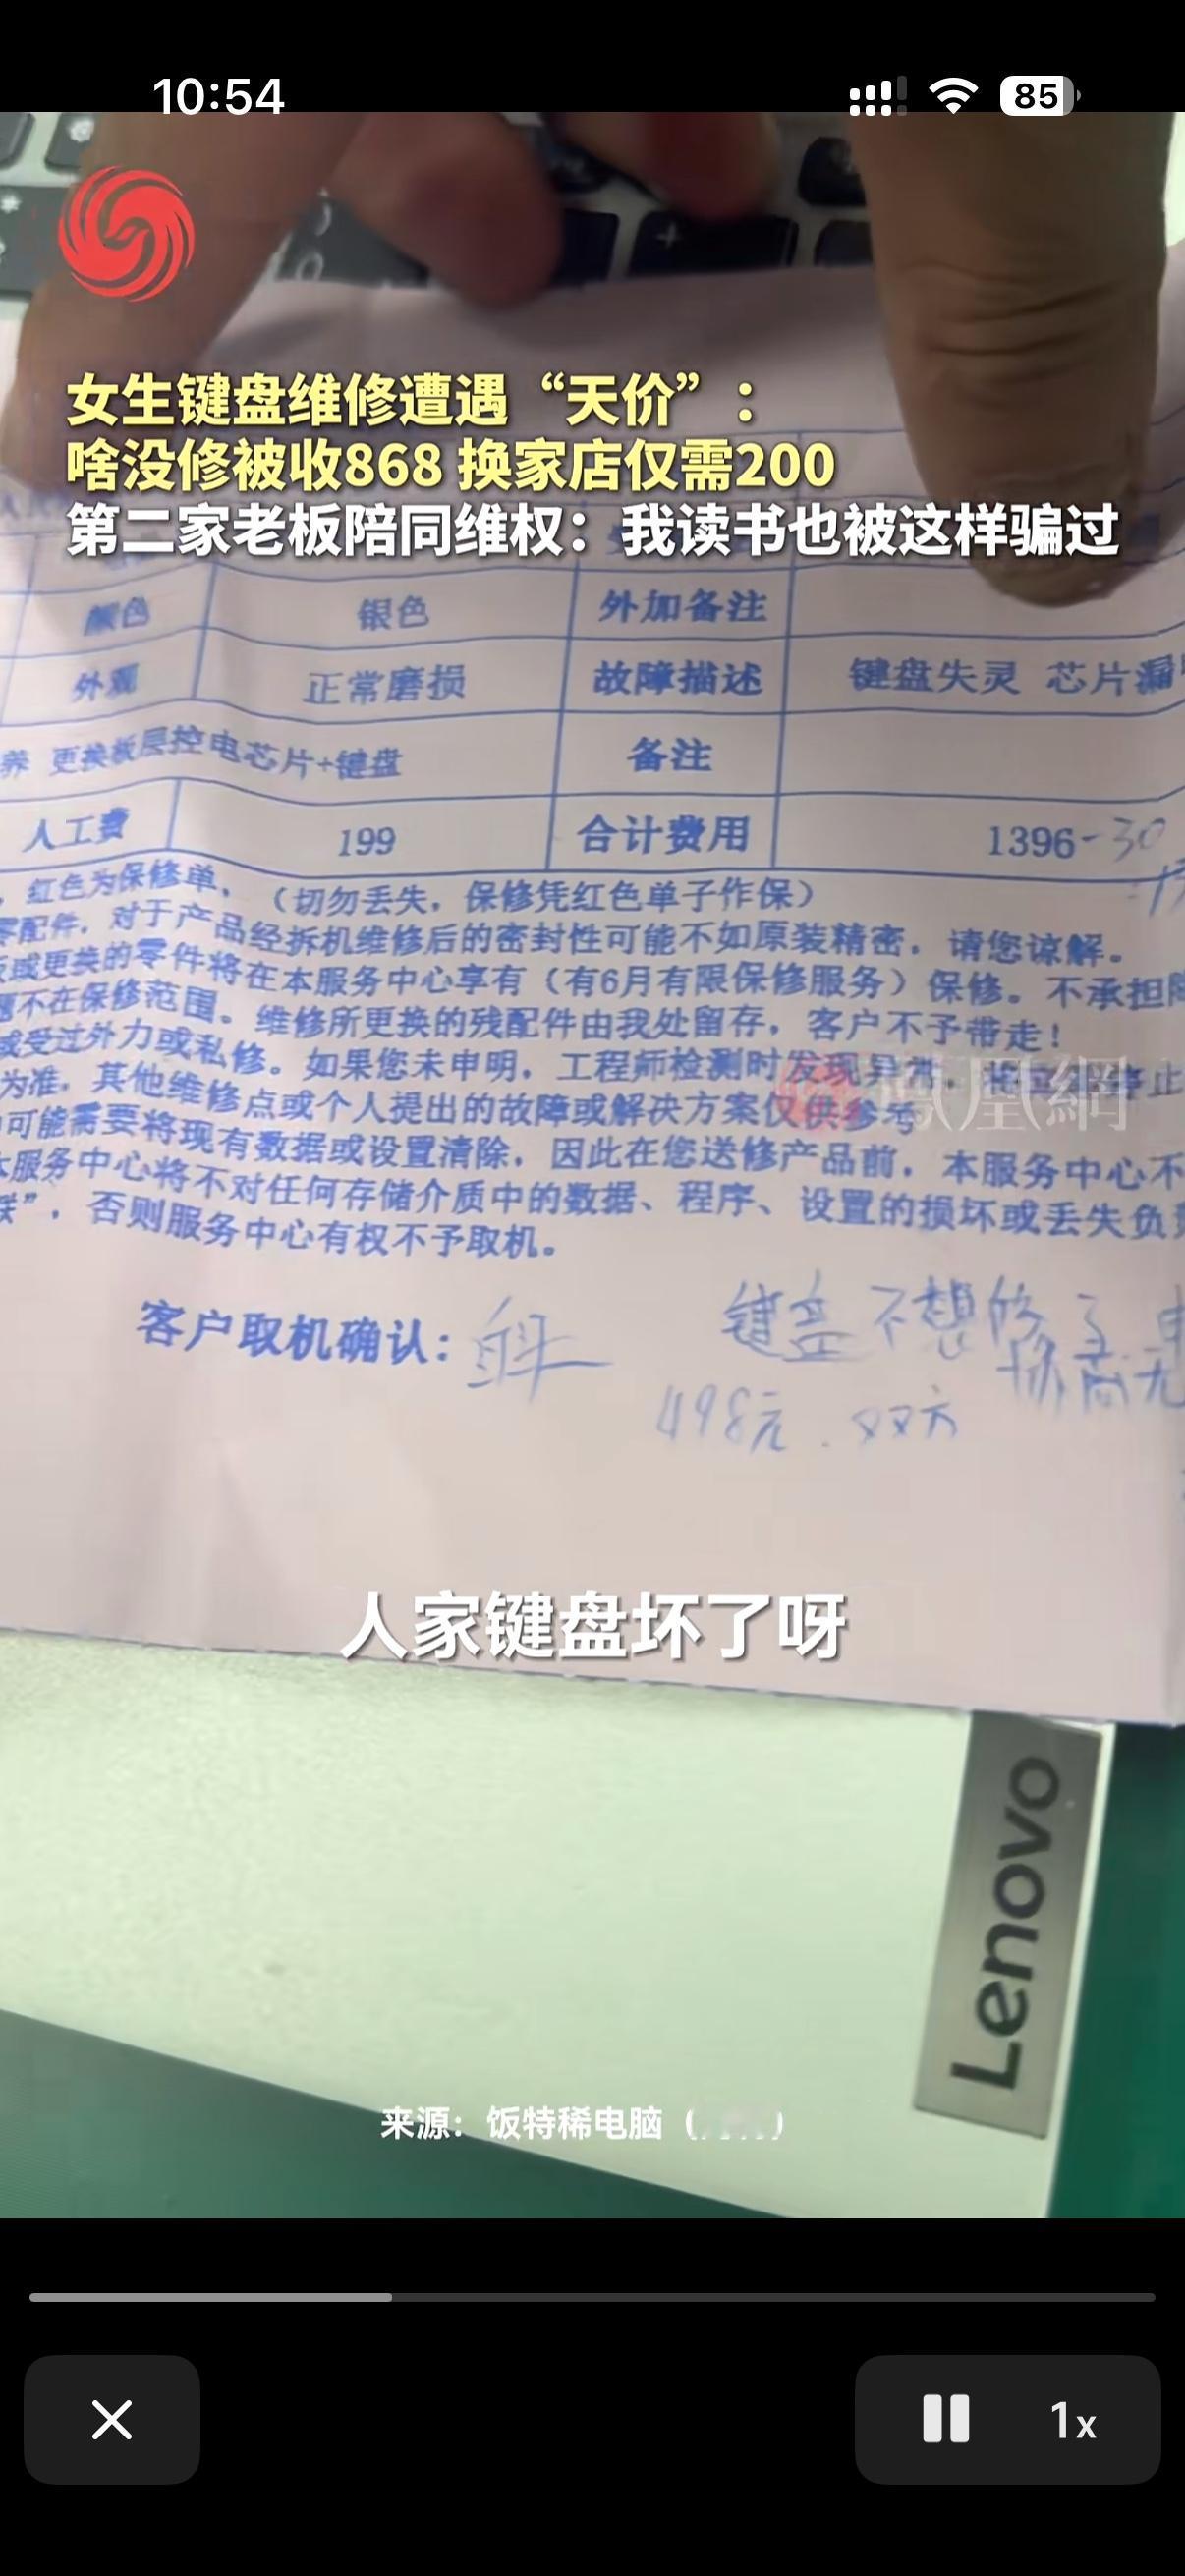 10:54
85
女生键盘维修遭遇“天价”：
啥没修被收868 换家店仅需200
第二家老板陪同维权：我读书也被这样骗过
颜色 银色 外加备注
外观 正常磨损 故障描述 键盘失灵 芯片漏
养 更换板层控电芯片+键盘 备注
人工费 199 合计费用 1396-30
红色为保修单，（切勿丢失，保修凭红色单子作保）
零配件，对于产品经拆机维修后的密封性可能不如原装精密，请您谅解。
或更换的零件将在本服务中心享有（有6月有限保修服务）保修。不承担
不在保修范围。维修所更换的残配件由我处留存，客户不予带走！
或受过外力或私修。如果您未申明，工程师检测时发现异常，
为准。其他维修点或个人提出的故障或解决方案仅供参考
可能需要将现有数据或设置清除，因此在您送修产品前，本服务中心不
本服务中心将不对任何存储介质中的数据、程序、设置的损坏或丢失负
联”，否则服务中心有权不予取机。
鳳凰網
客户取机确认：
键盘不想修了
498元．双方
人家键盘坏了呀
Lenovo
来源：饭特稀电脑（
1x